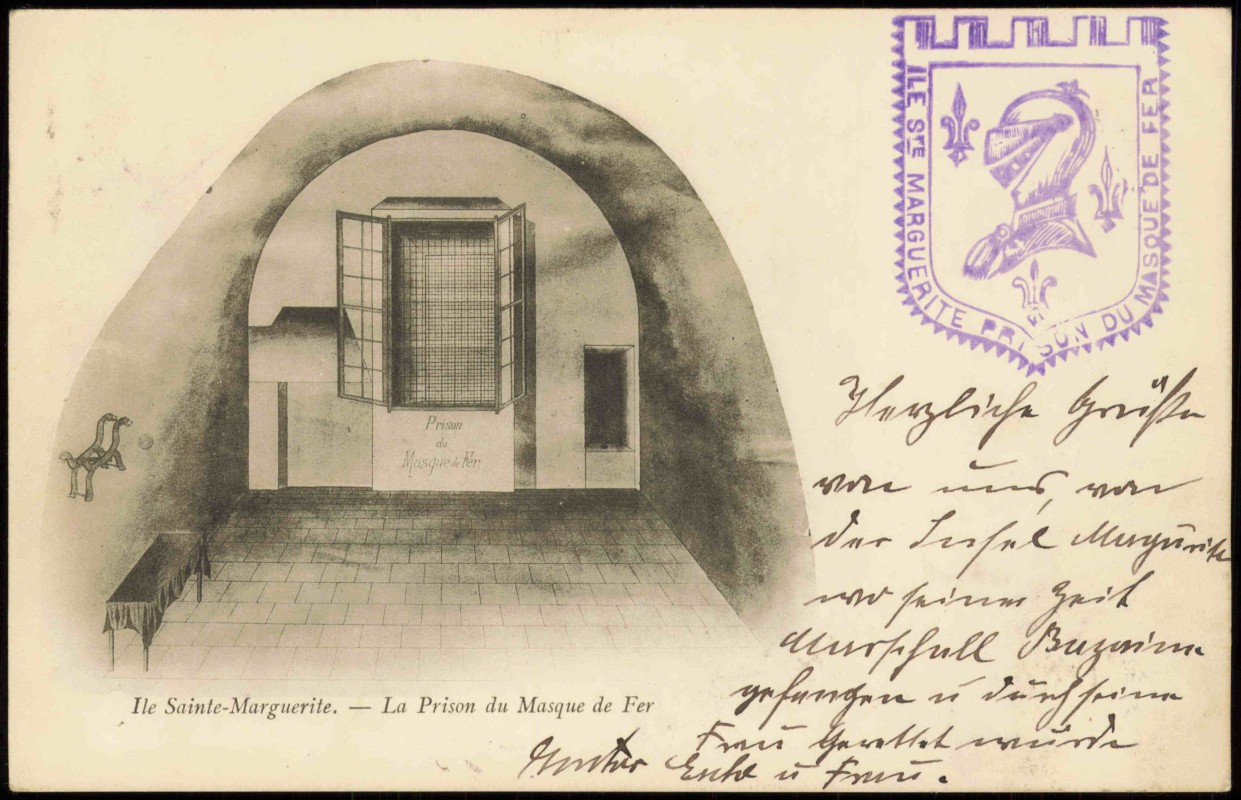 ILE STE MARGUERITE PRISON DU MASQUE DE FER
Prison
du
Masque de Fer
Herzliche Grüße
von uns, von
der Insel Margurite
wo seiner Zeit
Marschall Bazaine
gefangen u durch seine
Frau Gerettet wurde
u Frau.
Ile Sainte-Marguerite. — La Prison du Masque de Fer